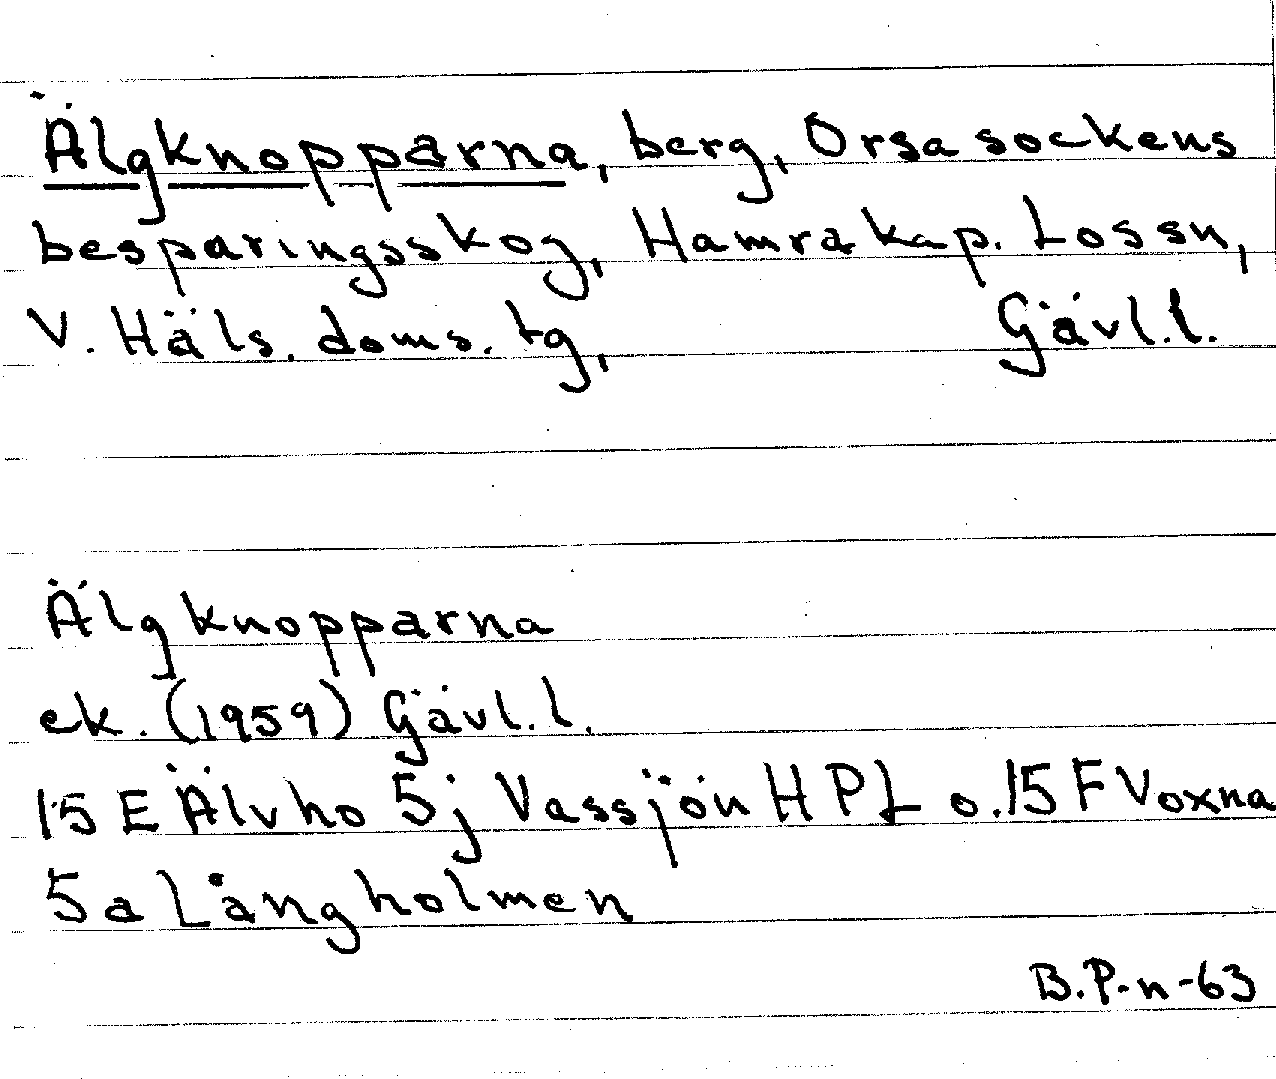 Älgknopparna, berg, Orsa sockens
besparingsskog, Hamra kap. Lossn,
V. Häls. doms. tg, Gävl. l.
Älgknopparna
ek. (1959) Gävl. l.
15 E Älvho 5j Vassjön HPL o. 15 F Voxna
5a Långholmen
B. P-n -63